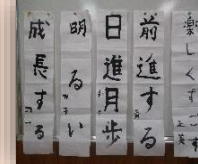 楽しくす
前進する
日進月歩
明るい
成長する